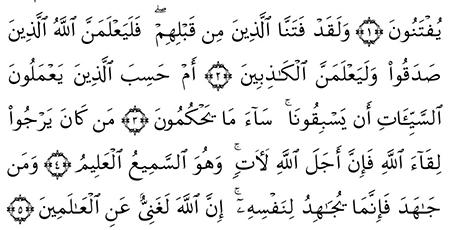 يُفْتَنُونَ ﴿١﴾ وَلَقَدْ فَتَنَّا ٱلَّذِينَ مِن قَبْلِهِمْۖ فَلَيَعْلَمَنَّ ٱللَّهُ ٱلَّذِينَ
صَدَقُواْ وَلَيَعْلَمَنَّ ٱلْكَٰذِبِينَ ﴿٢﴾ أَمْ حَسِبَ ٱلَّذِينَ يَعْمَلُونَ
ٱلسَّيِّـَٔاتِ أَن يَسْبِقُونَاۚ سَآءَ مَا يَحْكُمُونَ ﴿٣﴾ مَن كَانَ يَرْجُواْ
لِقَآءَ ٱللَّهِ فَإِنَّ أَجَلَ ٱللَّهِ لَأٓتٍۚ وَهُوَ ٱلسَّمِيعُ ٱلْعَلِيمُ ﴿٤﴾ وَمَن
جَٰهَدَ فَإِنَّمَا يُجَٰهِدُ لِنَفْسِهِۦٓۚ إِنَّ ٱللَّهَ لَغَنِيٌّ عَنِ ٱلْعَٰلَمِينَ ﴿٥﴾